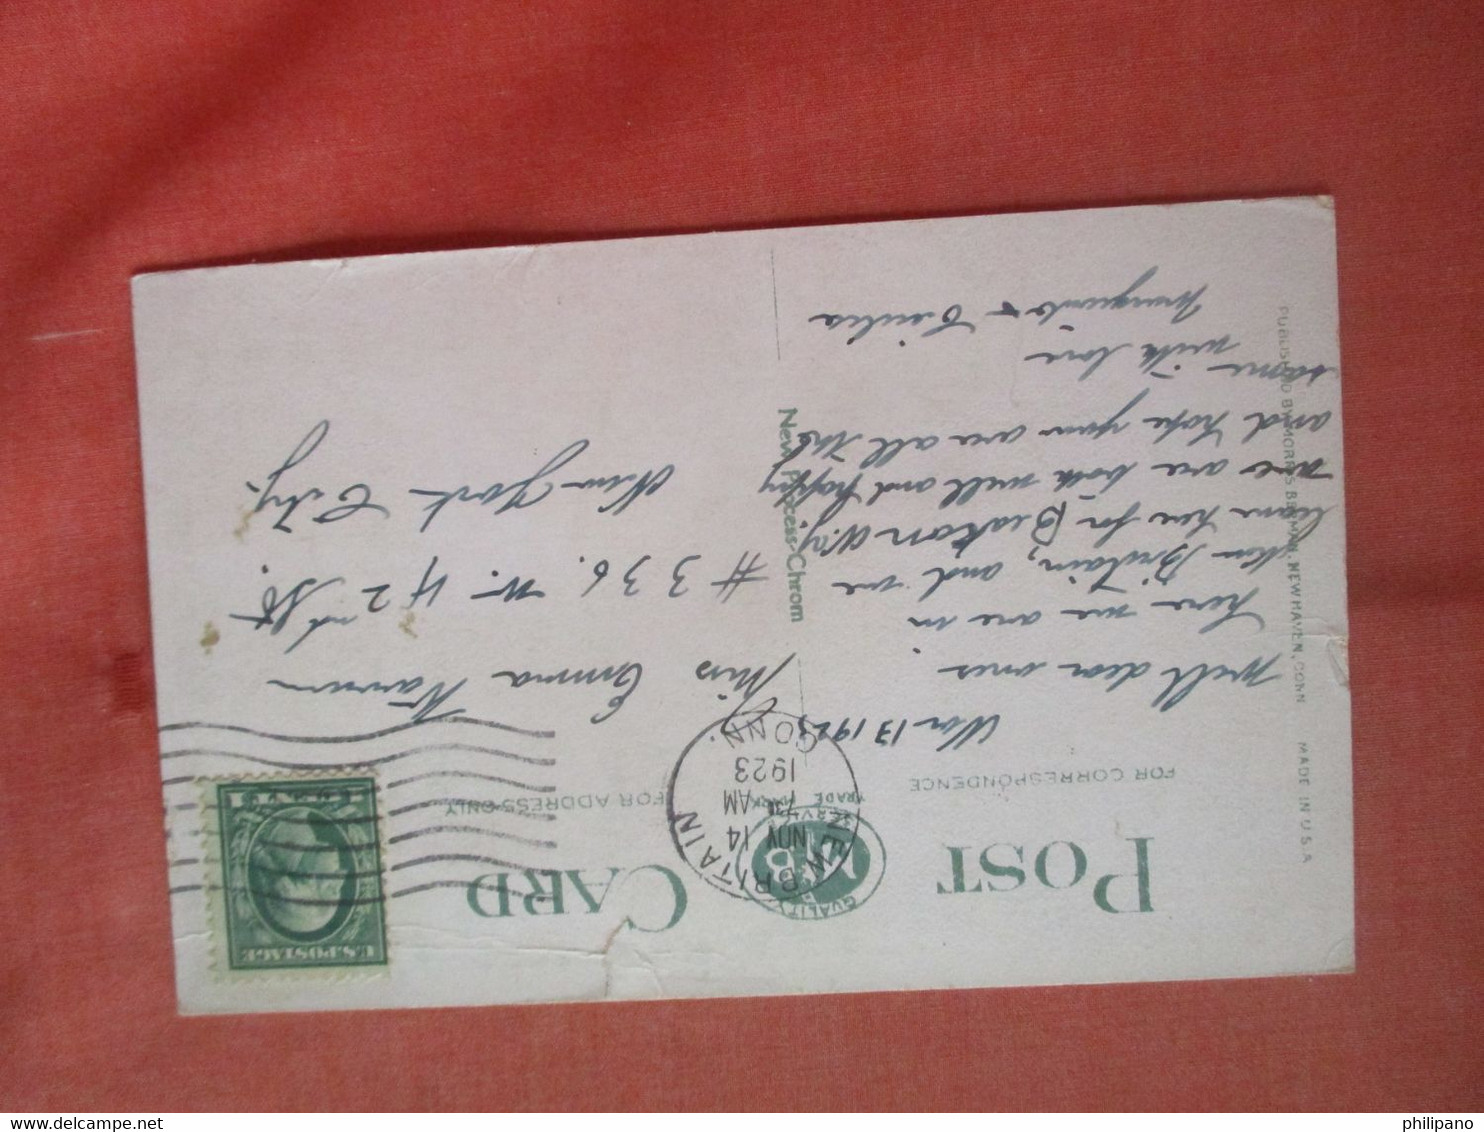 POST CARD
FOR CORRESPONDENCE
FOR ADDRESS ONLY
QUALITY
M&B
SERVICE
TRADE MARK
NEW BRITAIN
NOV 14
7 30 AM
1923
CONN.
U.S. POSTAGE
1 CENT 1
13 1923
Well dear ones
here we are in
New Britain, and we
leave here for
we are both well and happy
and hope you are all the
same with love
Miss Emma
# 336. W. 42nd St.
New York City.
New Process-Chrom
PUBLISHED BY MORRIS BERMAN, NEW HAVEN, CONN.
MADE IN U.S.A
philipano